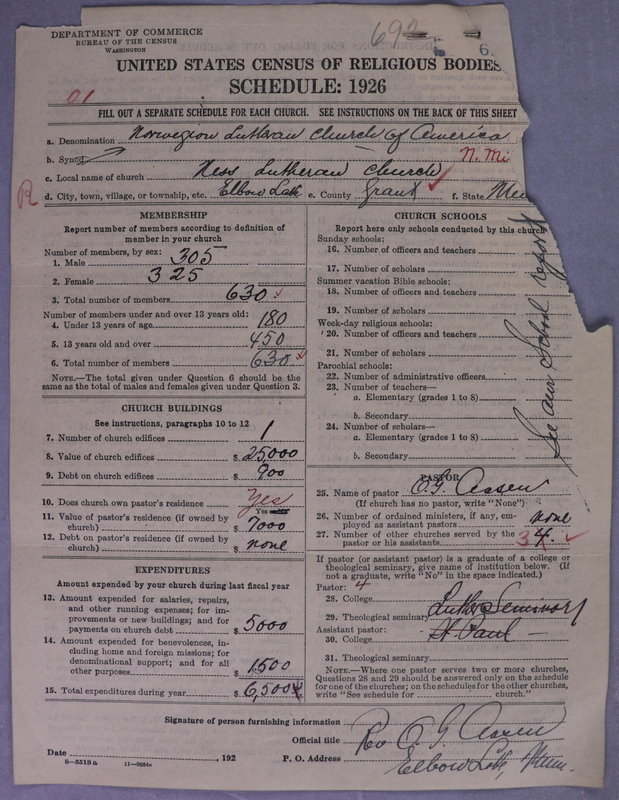 DEPARTMENT OF COMMERCE
BUREAU OF THE CENSUS
WASHINGTON
692
6.
UNITED STATES CENSUS OF RELIGIOUS BODIES
SCHEDULE: 1926
01
FILL OUT A SEPARATE SCHEDULE FOR EACH CHURCH. SEE INSTRUCTIONS ON THE BACK OF THIS SHEET
a. Denomination Norwegian Lutheran Church of America
b. Synod
N. Mi
c. Local name of church Ness Lutheran Church
R
d. City, town, village, or township, etc. Elbow Lake e. County Grant f. State
MEMBERSHIP
Report number of members according to definition of
member in your church
Number of members, by sex:
1. Male 305
2. Female 325
3. Total number of members 630
Number of members under and over 13 years old:
4. Under 13 years of age 180
5. 13 years old and over 450
6. Total number of members 630
NOTE.—The total given under Question 6 should be the
same as the total of males and females given under Question 3.
CHURCH BUILDINGS
See instructions, paragraphs 10 to 12
7. Number of church edifices 1
8. Value of church edifices $ 25,000
9. Debt on church edifices $ 900
10. Does church own pastor's residence? Yes
Yes
11. Value of pastor's residence (if owned by
church) $ 7000
12. Debt on pastor's residence (if owned by
church) $ none
EXPENDITURES
Amount expended by your church during last fiscal year
13. Amount expended for salaries, repairs,
and other running expenses; for im-
provements or new buildings; and for
payments on church debt $ 5000
14. Amount expended for benevolences, in-
cluding home and foreign missions; for
denominational support; and for all
other purposes $ 1,500
15. Total expenditures during year $ 6,500
CHURCH SCHOOLS
Report here only schools conducted by this church
Sunday schools:
16. Number of officers and teachers
17. Number of scholars
Summer vacation Bible schools:
18. Number of officers and teachers
19. Number of scholars
Week-day religious schools:
20. Number of officers and teachers
21. Number of scholars
Parochial schools:
22. Number of administrative officers
23. Number of teachers—
a. Elementary (grades 1 to 8)
b. Secondary
24. Number of scholars—
a. Elementary (grades 1 to 8)
b. Secondary
See our School report
PASTOR
25. Name of pastor O. G. Aasen
(If church has no pastor, write "None")
26. Number of ordained ministers, if any, em-
ployed as assistant pastors none
27. Number of other churches served by the
pastor or his assistants 3 4
If pastor (or assistant pastor) is a graduate of a college or
theological seminary, give name of institution below. (If
not a graduate, write "No" in the space indicated.)
Pastor: 4
28. College
29. Theological seminary Luther Seminary
Assistant pastor: St. Paul —
30. College
31. Theological seminary
NOTE.—Where one pastor serves two or more churches,
Questions 28 and 29 should be answered only on the schedule
for one of the churches; on the schedules for the other churches,
write "See schedule for church."
Signature of person furnishing information
Official title Rev O. G. Aasen
Date , 192 P. O. Address Elbow Lake, Minn.
8—5518a 11—9054